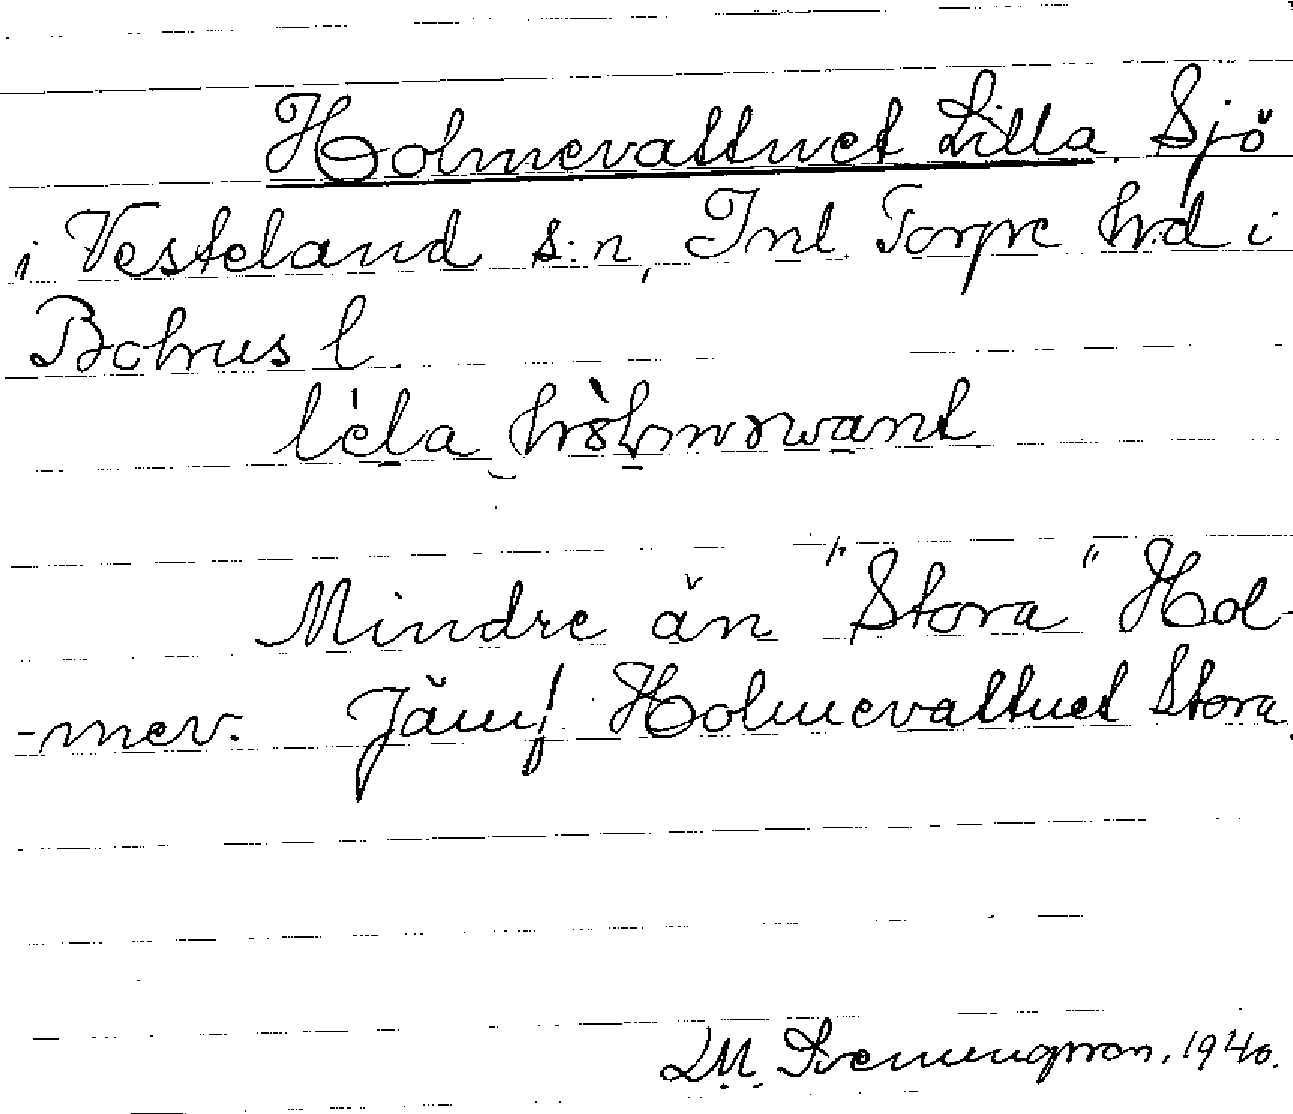 Holmevattnet Lilla. Sjö
i Vesteland s:n, Inl. Torpe hrd i
Bohus l.
Mindre än "Stora" Hol-
-mev. Jämf. Holmevattnet Stora.
L.M. Svenungsson. 1940.